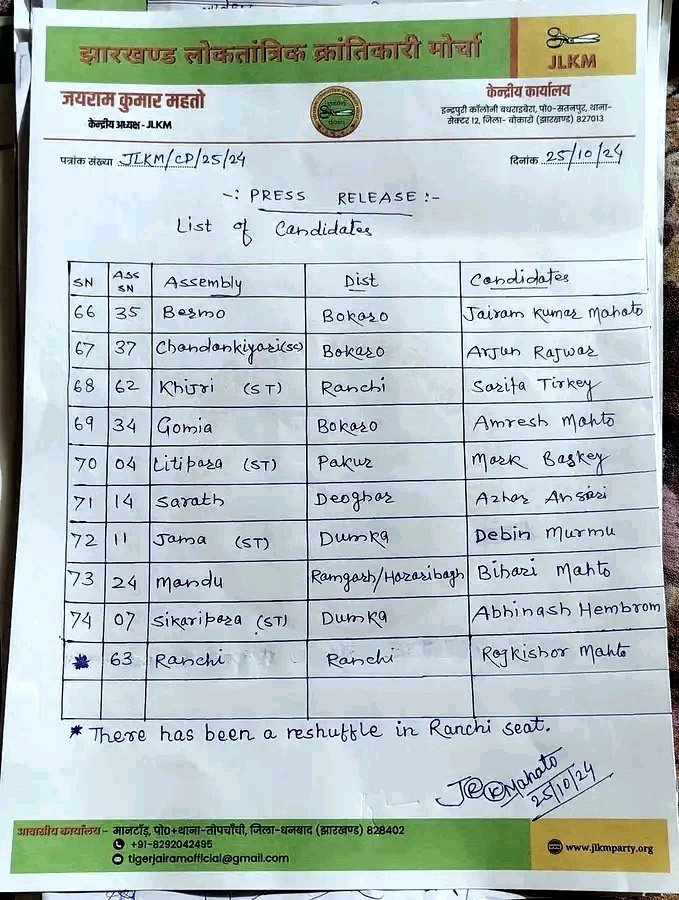 झारखण्ड लोकतांत्रिक क्रांतिकारी मोर्चा
JLKM
जयराम कुमार महतो
केन्द्रीय अध्यक्ष - JLKM
केन्द्रीय कार्यालय
इन्द्रपुरी कॉलोनी बधराइबेरा, पो०-सतनपुर, थाना-
सेक्टर 12, जिला- बोकारो (झारखण्ड) 827013
पत्रांक संख्या JLKM/CP/25/24
दिनांक 25/10/24
-: PRESS RELEASE :-
List of Candidates
SN ASS SN Assembly Dist Candidates
66 35 Bermo Bokaro Jairam Kumar Mahato
67 37 Chandankiyari(SC) Bokaro Arjun Rajwar
68 62 Khijri (ST) Ranchi Sarita Tirkey
69 34 Gomia Bokaro Amresh Mahto
70 04 Litipara (ST) Pakur Mark Baskey
71 14 Sarath Deoghar Azhar Ansari
72 11 Jama (ST) Dumka Debin Murmu
73 24 Mandu Ramgarh/Hazaribagh Bihari Mahto
74 07 Sikaripara (ST) Dumka Abhinash Hembrom
* 63 Ranchi Ranchi Rajkishor Mahto
* There has been a reshuffle in Ranchi seat.
25/10/24
आवासीय कार्यालय - मानटाँड़, पो०+थाना-तोपचाँची, जिला-धनबाद (झारखण्ड) 828402
+91-8292042495
tigerjairamofficial@gmail.com
www.jlkmparty.org